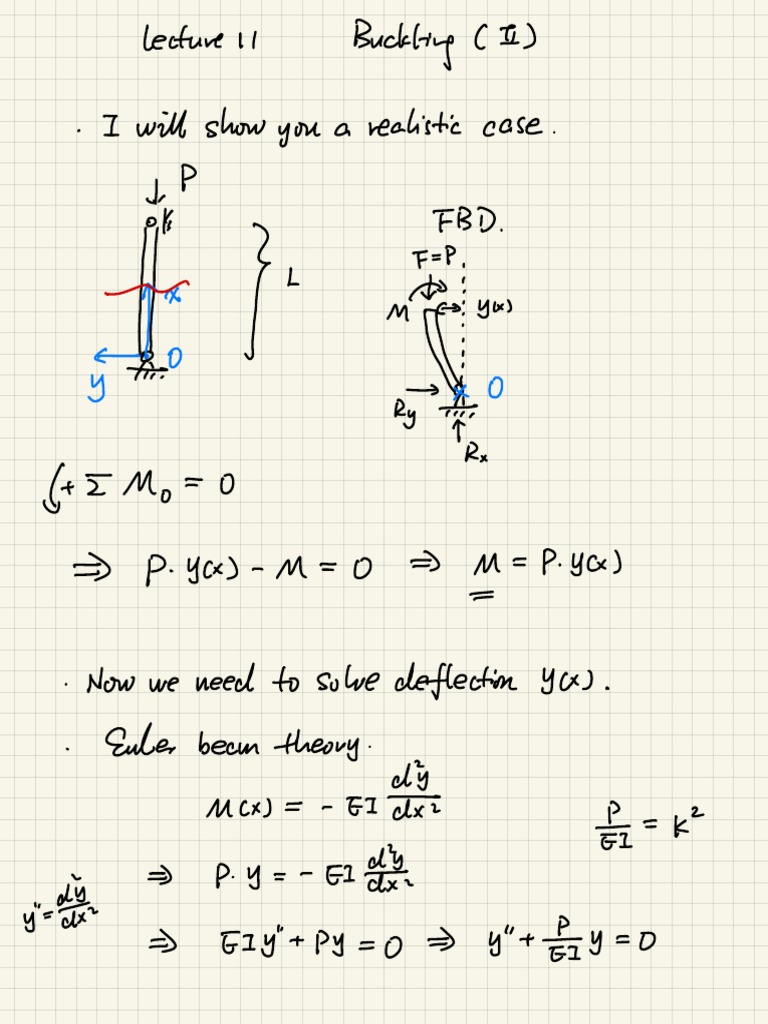 Lecture 11 Buckling (II)
· I will show you a realistic case.
P
x
L
y O
FBD.
F=P
M y(x)
O
Ry
Rx
+ Σ M₀ = 0
⇒ P·y(x) - M = 0 ⇒ M = P·y(x)
· Now we need to solve deflection y(x).
· Euler beam theory.
M(x) = - EI d²y/dx²
P/EI = k²
⇒ P·y = - EI d²y/dx²
y'' = d²y/dx²
⇒ EIy'' + Py = 0 ⇒ y'' + P/EI y = 0